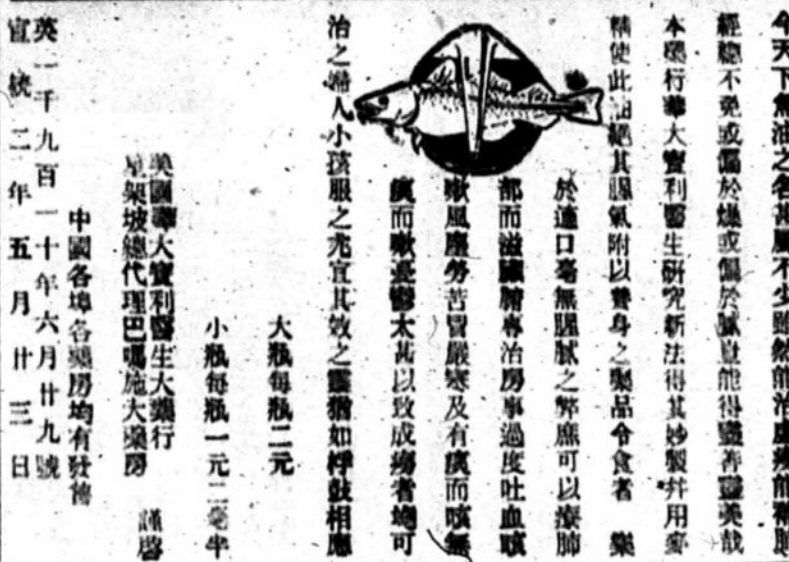 今天下魚油之名甚屬不少雖然能治虛癆能補肺
經總不免或偏於燥或偏於膩豈能得盡善盡美哉
本藥行華大寶利醫生研究新法得其妙製并用麥
精使此油絕其腥氣附以養身之藥品令食者 樂
於適口毫無腥膩之弊庶可以療肺
部而滋臟腑專治房事過度吐血咳
嗽風塵勞苦冒嚴寒及有痰而咳無
痰而嗽憂鬱太甚以致成癆者均可
治之婦人小孩服之尤宜其效之靈猶如桴鼓相應
大瓶每瓶二元
小瓶每瓶一元二毫半
美國華大寶利醫生大藥行
星架坡總代理巴嗎施大藥房 謹啓
中國各埠各藥房均有發售
英一千九百一十年六月廿九號
宣統二年五月廿三日